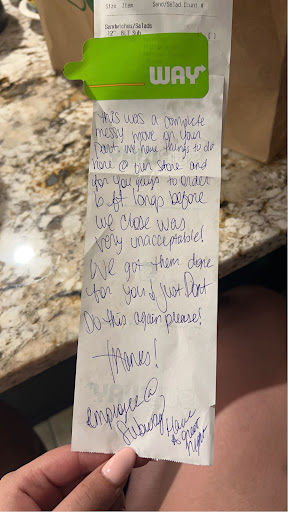 Size Item Sand/Salad Count #
Sandwiches/Salads
12" BLT Sub
WAY
This was a complete
messy move on your
Part, we have things to do
here @ our store and
for you guys to order
6 ft longs before
we close was
very unacceptable!
We got them done
for you & just Dont
Do this again please!
thanks!
employee @
Subway
Have
A great
night